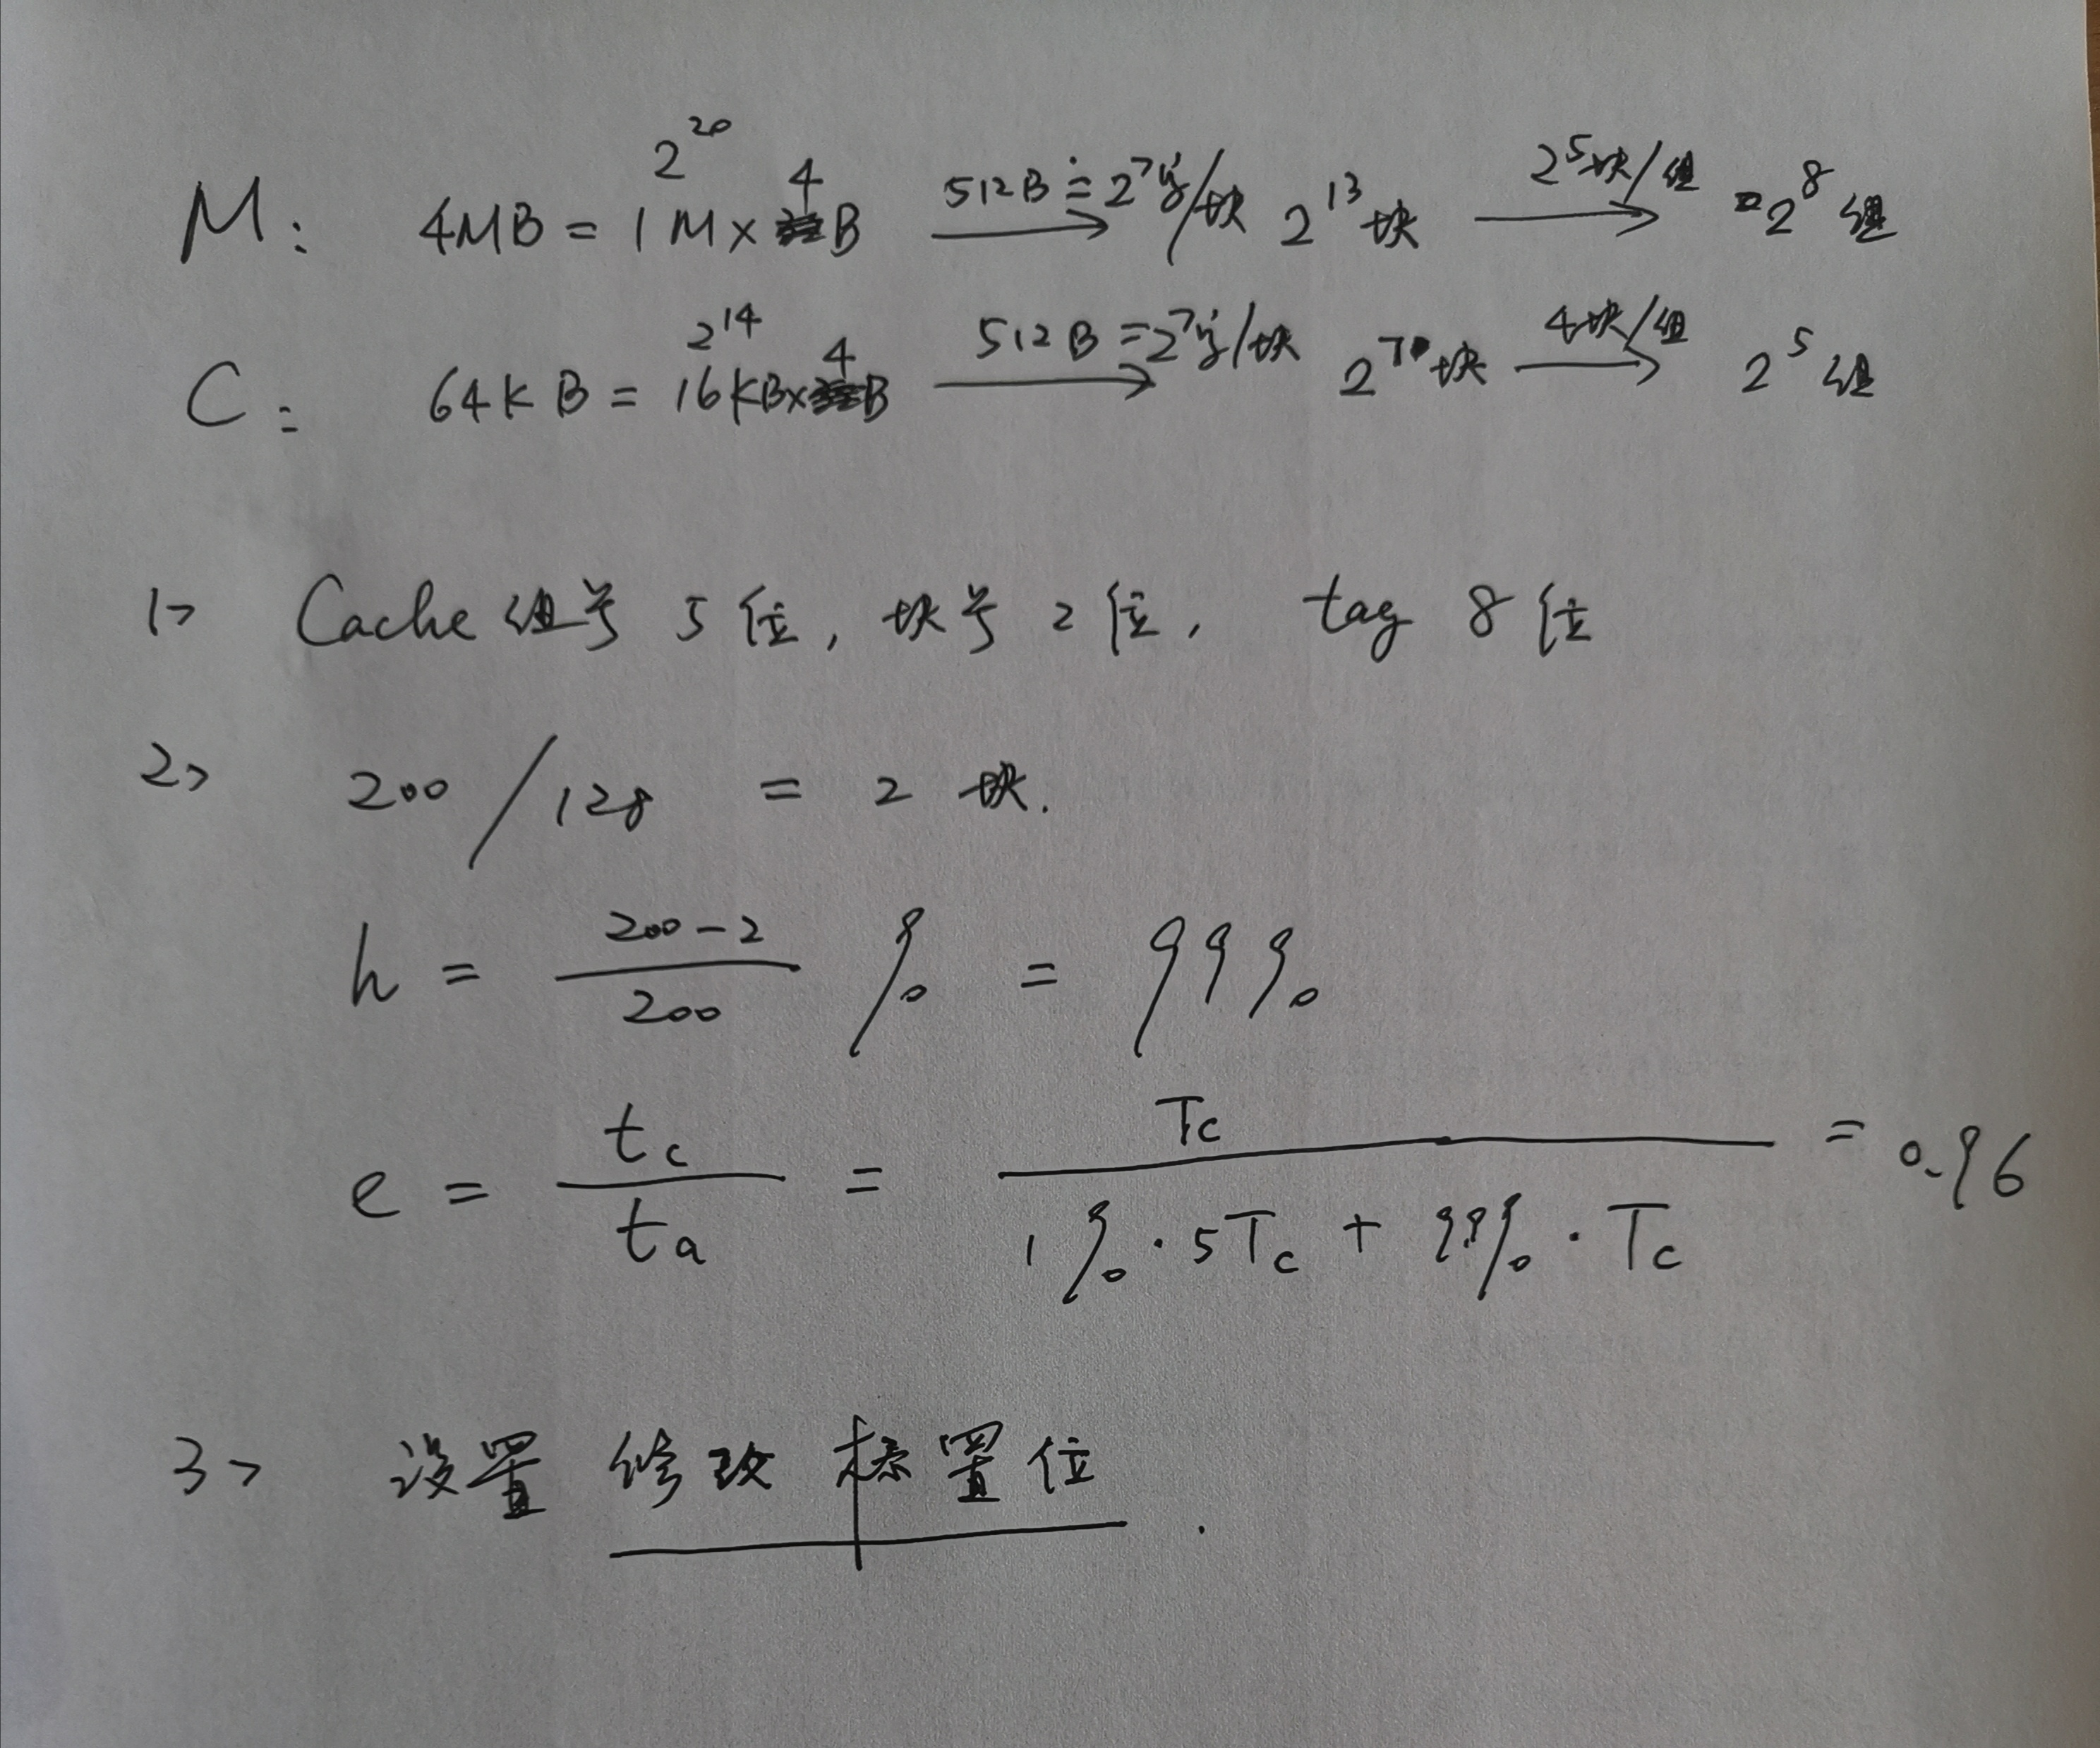 M: 4MB = 1M×4B 2^20 512B=2^7字/块 2^13块 2^5块/组 =2^8组
C: 64KB = 16KB×4B 2^14 512B=2^7字/块 2^7块 4块/组 2^5组
1> Cache组号5位,块号2位, tag 8位
2> 200/128 = 2块.
h = (200-2)/200 % = 99%
e = tc/ta = Tc/(1%·5Tc + 99%·Tc) = 0.96
3> 设置 修改标置位.